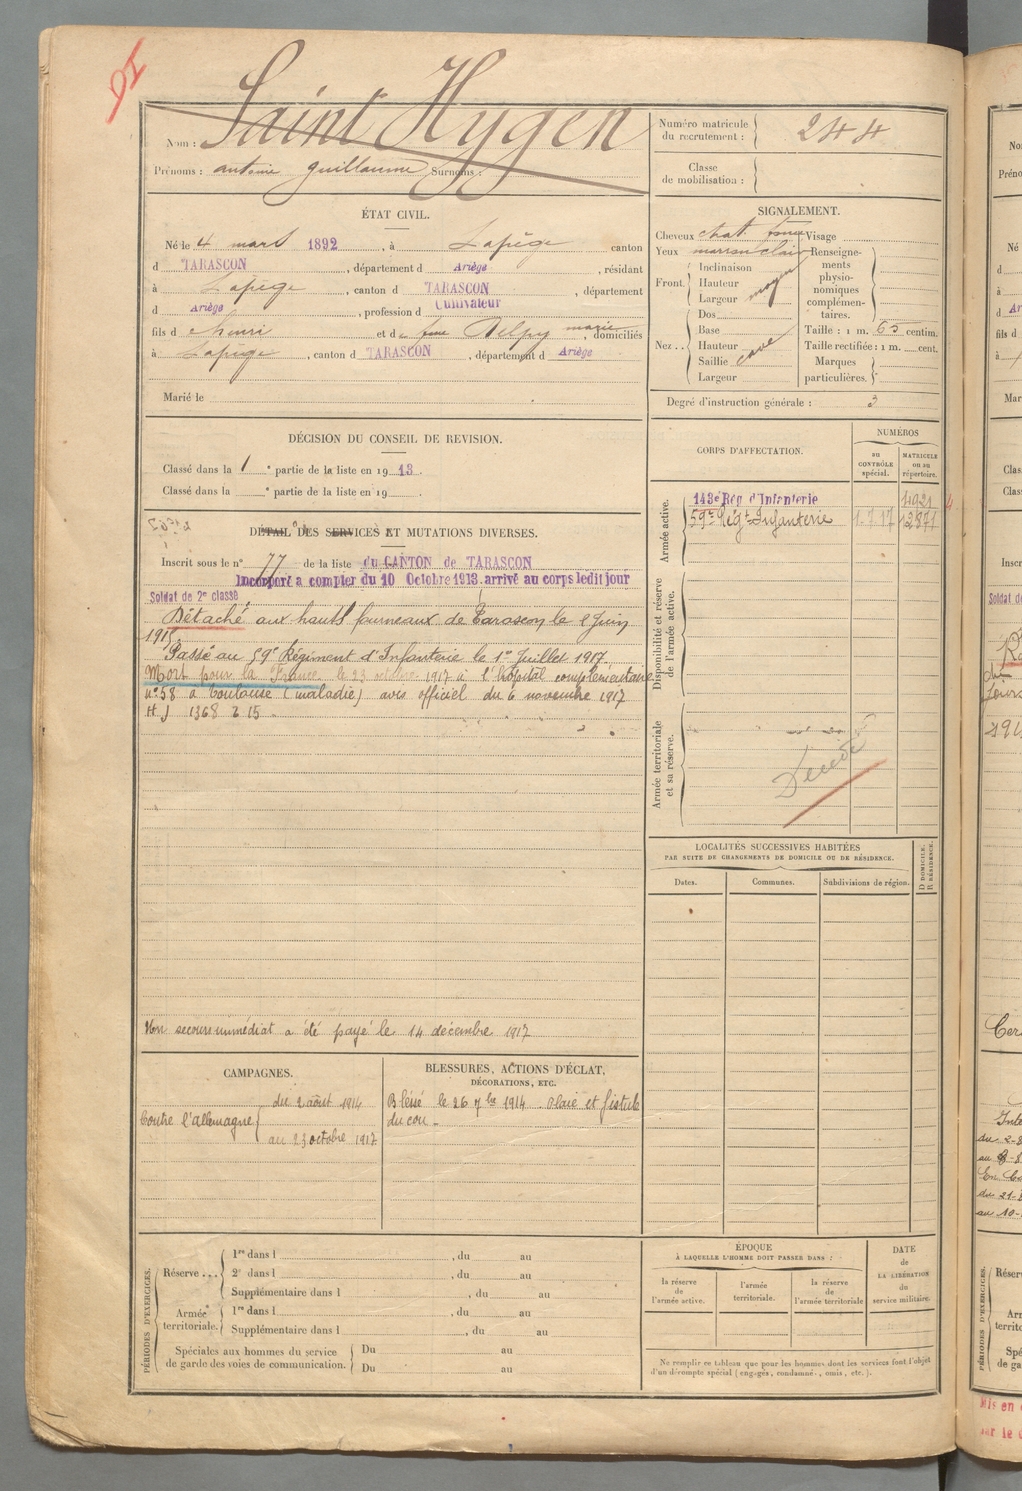 Nom : Saint Hygen
Prénoms : antoine Guillaume Surnoms :
Numéro matricule du recrutement : 244
Classe de mobilisation :
ÉTAT CIVIL.
Né le 4 mars 1892, à Lapège canton
d TARASCON, département d Ariège, résidant
à Lapège, canton d TARASCON, département
d Ariège, profession d Cultivateur
fils d Henri et de feue Delpy marie, domiciliés
à Lapège, canton d TARASCON, département d Ariège
Marié le
SIGNALEMENT.
Cheveux chat. foncé Visage
Yeux marron clair Renseignements physionomiques complémentaires.
Front. Inclinaison
Hauteur moyen
Largeur
Nez.. Dos
Base
Hauteur
Saillie cave
Largeur
Taille : 1 m. 65 centim.
Taille rectifiée : 1 m. cent.
Marques particulières.
Degré d'instruction générale : 3
DÉCISION DU CONSEIL DE REVISION.
Classé dans la 1 e partie de la liste en 1913.
Classé dans la e partie de la liste en 19
CORPS D'AFFECTATION.
NUMÉROS
au CONTRÔLE spécial.
MATRICULE ou au répertoire.
Armée active.
143e Rég d'Infanterie 4921
59e Rég t Infanterie 1.7.17 12871
Disponibilité et réserve de l'armée active.
Armée territoriale et sa réserve.
Décédé
DÉTAIL DES SERVICES ET MUTATIONS DIVERSES.
Inscrit sous le n° 77 de la liste du CANTON de TARASCON
Incorporé à compter du 10 Octobre 1913 arrivé au corps ledit jour
Soldat de 2e classe
Détaché aux hauts fourneaux de Tarascon le 2 Juin
1915.
Passé au 59e Régiment d'Infanterie le 1er Juillet 1917
Mort pour la France le 23 octobre 1917 à l'hôpital complémentaire
n° 58 à Toulouse (maladie) avis officiel du 6 novembre 1917
1368
Un secours immédiat a été payé le 14 décembre 1917
LOCALITÉS SUCCESSIVES HABITÉES
PAR SUITE DE CHANGEMENTS DE DOMICILE OU DE RÉSIDENCE.
Dates. Communes. Subdivisions de région. D DOMICILE. R RÉSIDENCE.
CAMPAGNES.
Contre l'allemagne
du 2 août 1914
au 23 octobre 1917
BLESSURES, ACTIONS D'ÉCLAT,
DÉCORATIONS, ETC.
Blessé le 26 7bre 1914. Plaie et fistule
du cou
PÉRIODES D'EXERCICES.
Réserve ... 1re dans l , du au
2e dans l , du au
Supplémentaire dans l , du au
Armée territoriale. 1re dans l , du au
Supplémentaire dans l , du au
Spéciales aux hommes du service de garde des voies de communication. Du au
Du au
ÉPOQUE
À LAQUELLE L'HOMME DOIT PASSER DANS :
la réserve de l'armée active.
l'armée territoriale.
la réserve de l'armée territoriale
DATE de LA LIBÉRATION du service militaire.
Ne remplir ce tableau que pour les hommes dont les services font l'objet
d'un décompte spécial (engagés, condamnés, omis, etc.).